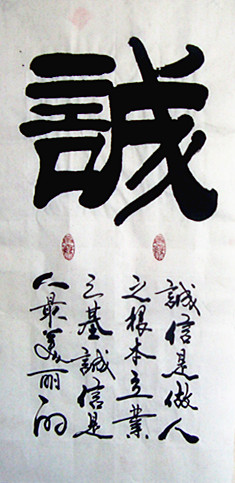 誠
誠信是做人
之根本立業
之基誠信是
人最美丽的